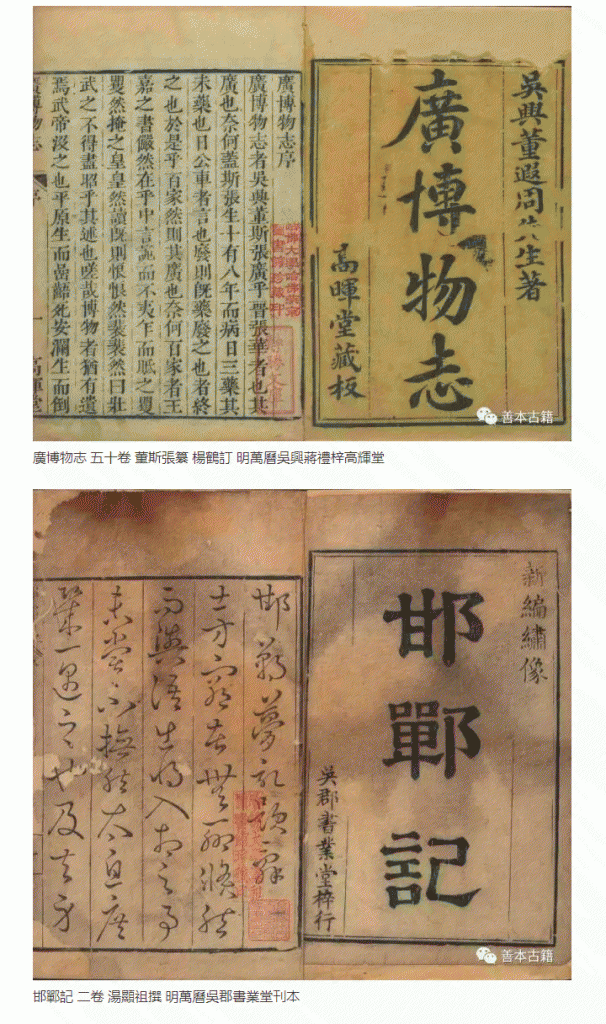 吳興董遐周先生著
廣博物志
高暉堂藏板
廣博物志序
廣博物志者吳興董斯張廣乎晉張華者也其
廣也奈何蓋斯張生十有八年而病日三藥其
未藥也日公車者言也廢則旣藥廢之也者終
之也於是乎百家然則其廣也奈何百家者王
嘉之書儼然在乎中言詭而不夷乍而眂之
然掩之皇皇然讀旣則恨恨然裴裴然曰壯
武之不得盡昭乎其述也嗟哉博物者猶有遺
焉武帝汲之也平原生而死安瀾生而倒
廣博物志 序 一 高暉堂
善本古籍
廣博物志 五十卷 董斯張纂 楊鶴訂 明萬曆吳興蔣禮梓高輝堂
新編繡像
邯鄲記
吳郡書業堂梓行
邯鄲夢記題辭
士方窮苦無聊倏然
而與語出將入相之事
未嘗不撫然太息庶
幾一遇之也及夫身
善本古籍
邯鄲記 二卷 湯顯祖撰 明萬曆吳郡書業堂刊本